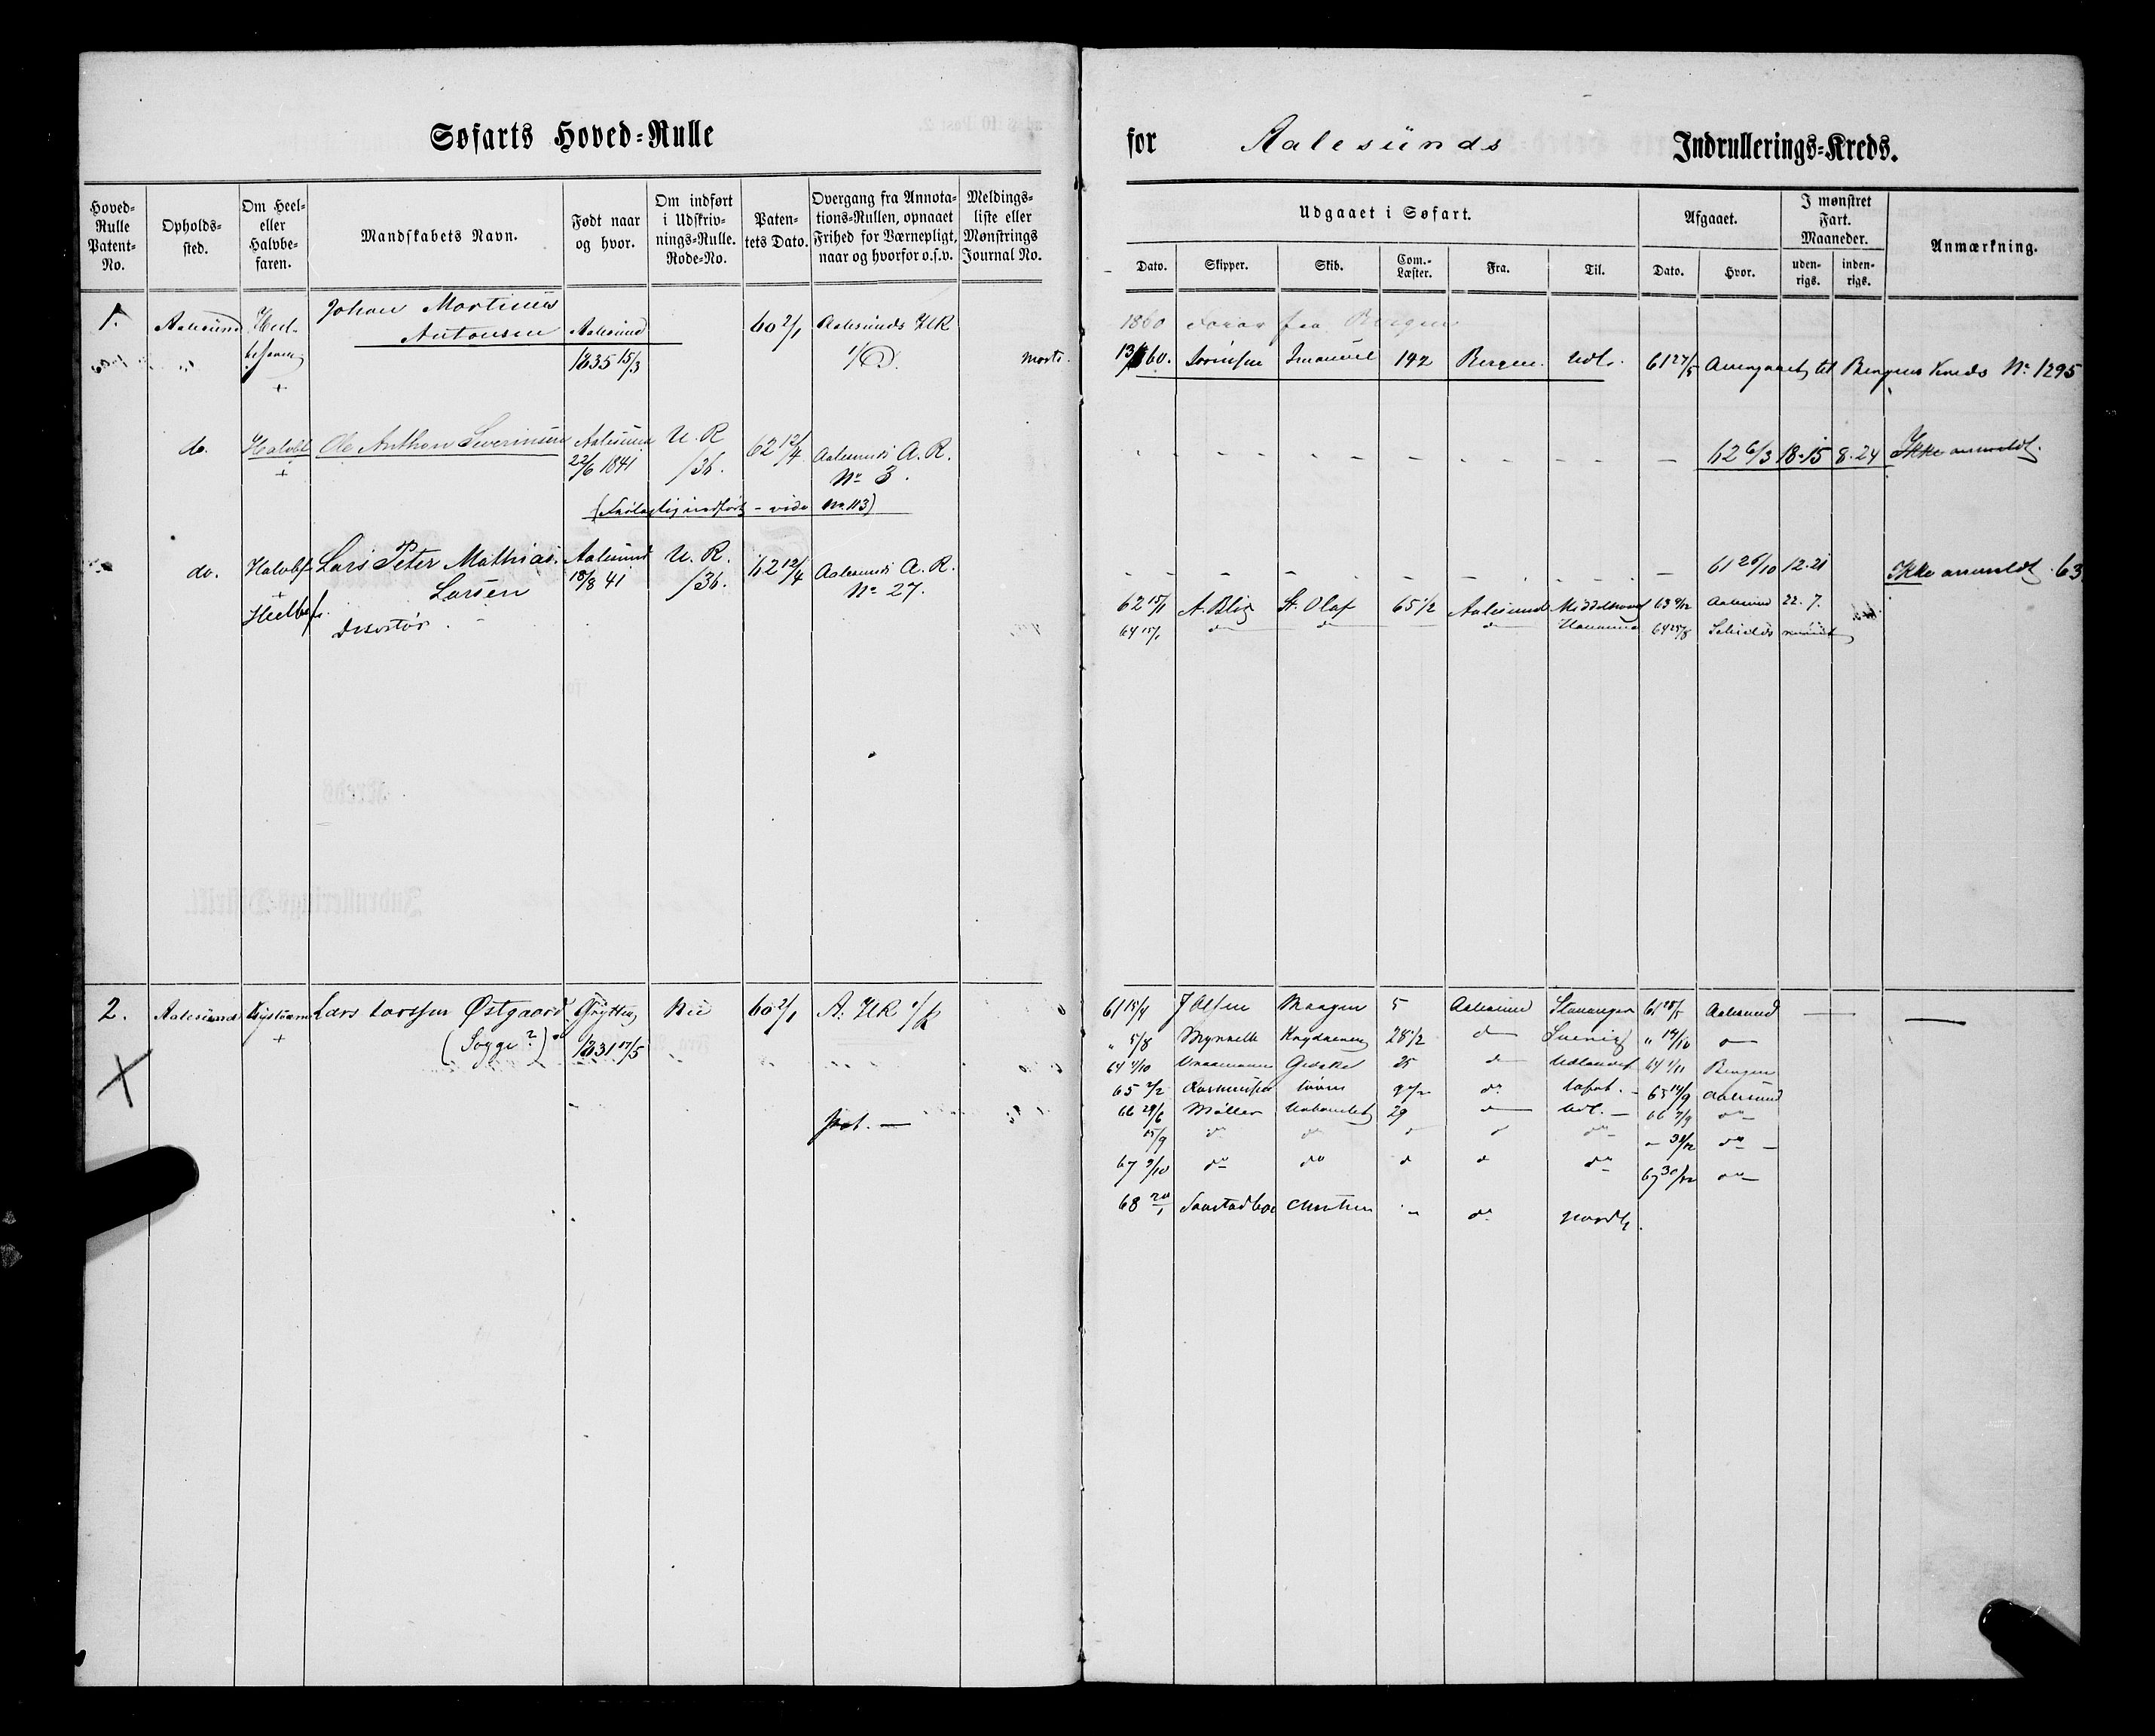 Søfarts Hoved=Rulle
for Aalesunds Indrullerings=Kreds.
Hoved=Rulle Patent=No.
Opholds=sted.
Om Heel= eller Halvbe=faren.
Mandskabets Navn.
Født naar og hvor.
Om indført i Udskriv=nings=Rulle. Rode=No.
Paten=tets Dato.
Overgang fra Annota=tions=Rullen, opnaaet Frihed for Værnepligt, naar og hvorfor o.s.v.
Meldings=liste eller Mønstrings Journal No.
Udgaaet i Søfart.
Dato. Skipper. Skib. Com.=Læster. Fra. Til.
Afgaaet.
Dato. Hvor.
I mønstret Fart. Maaneder.
uden=rigs. inden=rigs.
Anmærkning.
1. Aalesund Heel- Johan Martinus
Antonsen Aalesund 60 2/1 Aalesunds UR
befaren 1835 15/3
+
1860 fra Bergen
13/ 60. Imanuel 142 Bergen. Udl. 61 27/5 Overgaaet til Bergens Kreds No 1295
do. Halvbf. Ole Anthon Severinsen Aalesund U. R 62 12/4 Aalesunds A. R.
+ 22/6 1841 /36. No 3.
62 6/3 18-15 8-24 Ikke anmeldt.
(Endelig indført - vide No 113)
do. Halvbf. Lars Peter Mathias. Aalesund U. R. 62 12/4 Aalesunds A. R.
+ Larsen 18/8 41 /36. No 27.
Heelbef. Desertør.
61 26/10 12-21 Ikke anmeldt 63
62 15/1 A. Blix St. Olaf 65 1/2 Aalesund Middelhavet 63 9/12 Aalesund 22. 7.
64 15/1 d d d 64 25/8 Schields rømt
2. Aalesund Lars Larssen Østgaard Grytten Nei 60 2/1 A. UR
+ (Sogge?) 1831 17/5
pat. —
61 15/4 J Olsen Maagen 5 Aalesund Stavanger 61 28/5 Aalesund — —
" 5/8 28 1/2 d Sverrig " 14/10 d
64 1/10 25 d Udlandet 64 1/11 Bergen
65 2/2 Rasmussen do 65 14/9 Aalesund
66 29/6 Møller 29 d Udl. — 66 7/9 do
15/9 do d d d do " 31/12 do
67 9/10 do do d d do 67 30/12 do
68 20/1 " do Nordl.